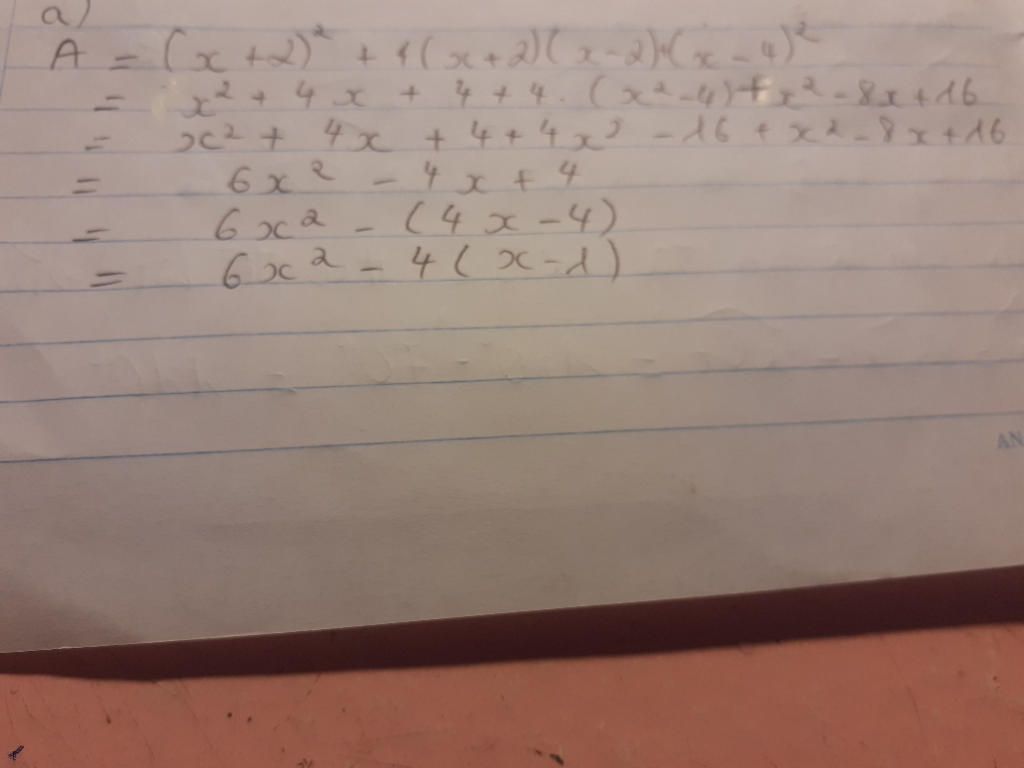 a)
A = (x+2)² + 4(x+2)(x-2)+(x-4)²
= x² + 4x + 4 + 4. (x²-4)+x²-8x+16
= x² + 4x + 4 + 4x² - 16 + x² - 8x + 16
= 6x² - 4x + 4
= 6x² - (4x - 4)
= 6x² - 4(x-1)
AN